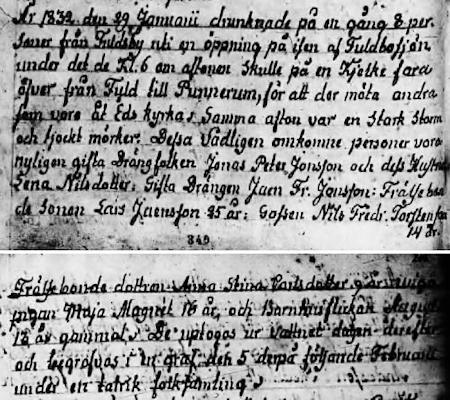 År 1832 den 29 Januarii drunknade på en gång 8 per-
soner från Fuldsby uti en öppning på isen af Fuldbosjön,
under det de Kl. 6 om aftonen skulle på en Kjelke fara
öfver från Fyld till Runnerum, för att der möta andra
som voro åt Eds kyrka. Samma afton var en stark storm
och tjockt mörker. Dessa vådligen omkomne personer voro
nyligen gifta Drängfolken Jonas Peter Jonsson och dess Hustru
Lena Nilsdotter: Gifta Drängen Jaen Fr. Jansson: Frälsebon-
de Sonen Lars Jaensson 25 år: Gossen Nils Fredr. Torstensson
14 år.
349
Frälsebonde dottren Anna Stina Carlsdotter
pigan Maja Magnét 16 år, och Barnhusflickan
13 år gammal. De uptogos ur vattnet dagen derefter
och begrofvos i en graf den 5 derpå följande Februarii
under en talrik folksamling.